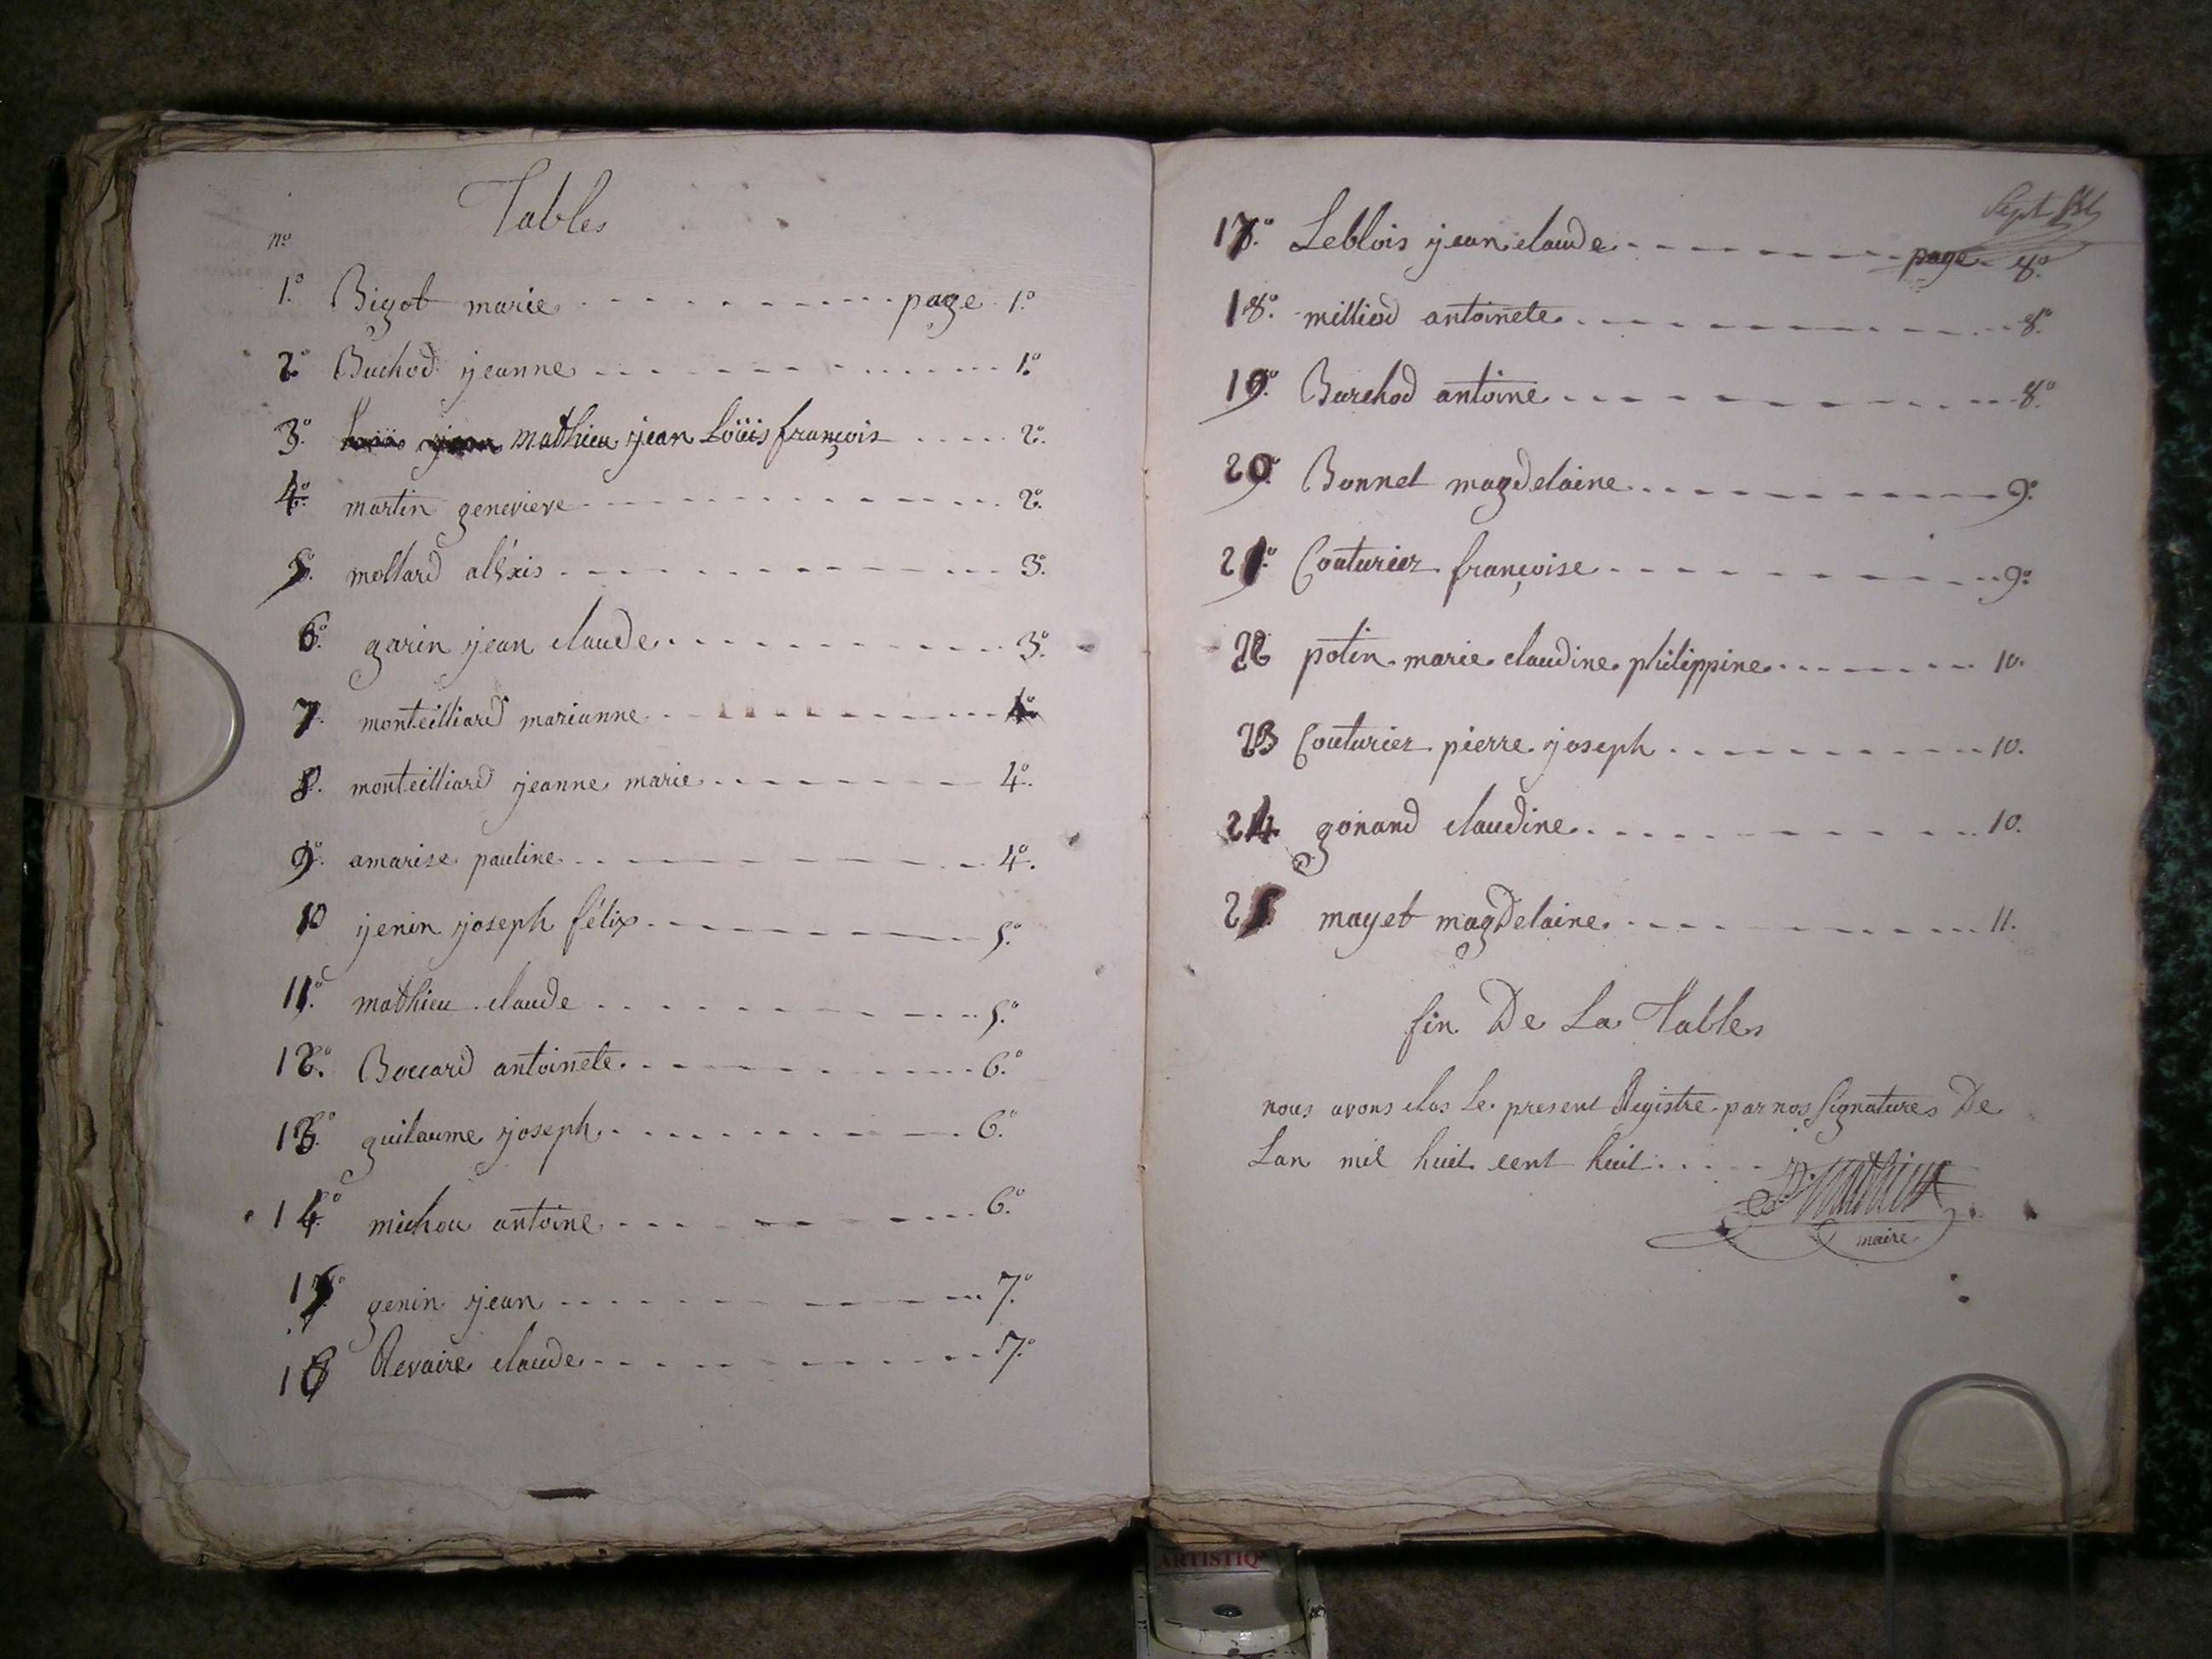 Tables
no
1.° Bigot marie - - - - - - - - - - - page 1.°
2.° Buchod jeanne - - - - - - - - - - - 1.°
3.° mathieu jean Loüis françois - - - - 2.°
4.° martin genevieve - - - - - - - - - - - 2.°
5.° mollard aléxis - - - - - - - - - - - 3.°
6.° garin jean claude - - - - - - - - - - - 3.°
7. monteilliard marianne - - - - - - - - - - - 4.°
8. monteilliard jeanne marie - - - - - - - - 4.°
9.° amarise pauline - - - - - - - - - - - 4.°
10 jenin joseph félix - - - - - - - - - - - 5.°
11.° mathieu claude - - - - - - - - - - - 5.°
12.° Boccard antoinete - - - - - - - - - - - 6.°
13.° guilaume joseph - - - - - - - - - - - 6.°
14.° michou antoine - - - - - - - - - - - 6.°
15.° genin jean - - - - - - - - - - - 7.°
16 Revaire claude - - - - - - - - - - - 7.°
Sept
17.° Leblois jean claude - - - - - - - - page - 8.°
18.° milliod antoinete - - - - - - - - - - - 8.°
19.° Burchod antoine - - - - - - - - - - - 8.°
20.° Bonnet magdelaine - - - - - - - - - - - 9.°
21.° Couturier françoise - - - - - - - - - - - 9.°
22 potin marie claudine philippine - - - - - - - 10.
23 Couturier pierre joseph - - - - - - - - - - - 10.
24 gonand claudine - - - - - - - - - - - 10.
25 mayet magdelaine - - - - - - - - - - - 11.
fin De La Tables
nous avons clos Le present Registre par nos Signatures De
Lan mil huit cent huit - - - - -
Mathieu
maire
ARTISTIQ